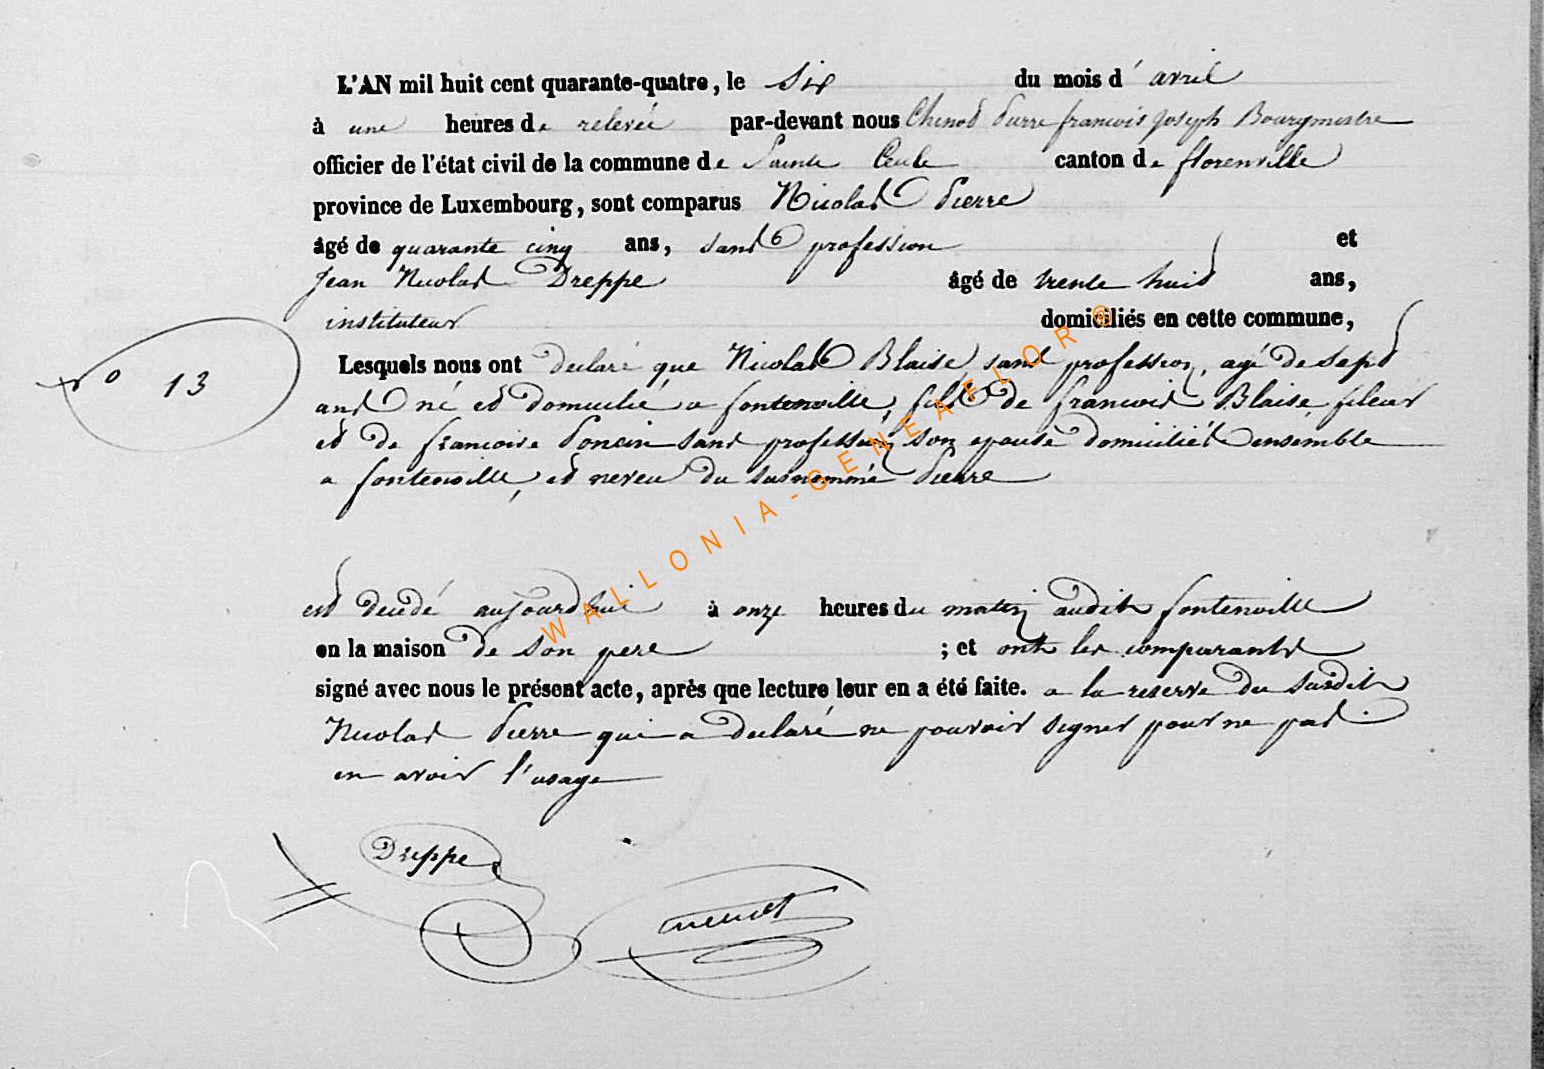 L'AN mil huit cent quarante-quatre, le Six du mois d' avril
à une heures de relevée par-devant nous Chenot Pierre francois Joseph Bourgmestre
officier de l'état civil de la commune de Sainte Cecile canton de florenville
province de Luxembourg, sont comparus Nicolas Pierre
âgé de quarante cinq ans, sans profession et
Jean Nicolas Dreppe âgé de trente huit ans,
instituteur domiciliés en cette commune,
n° 13
Lesquels nous ont declaré que Nicolas Blaise, sans profession, agé de Sept
ans né et domicilié a fontenoille, fils de francois Blaise, fileur
et de francoise Poncin sans profession, son epouse domiciliés ensemble
a fontenoille, et neveu du susnommé Pierre
est decedé aujourd'hui à onze heures du matin audit fontenoille
en la maison de son pere ; et ont les comparants
signé avec nous le présent acte, après que lecture leur en a été faite. a la reserve du susdit
Nicolas Pierre qui a declaré ne pouvoir signer pour ne pas
en avoir l'usage
Dreppe
WALLONIA-GENEAFLOR®